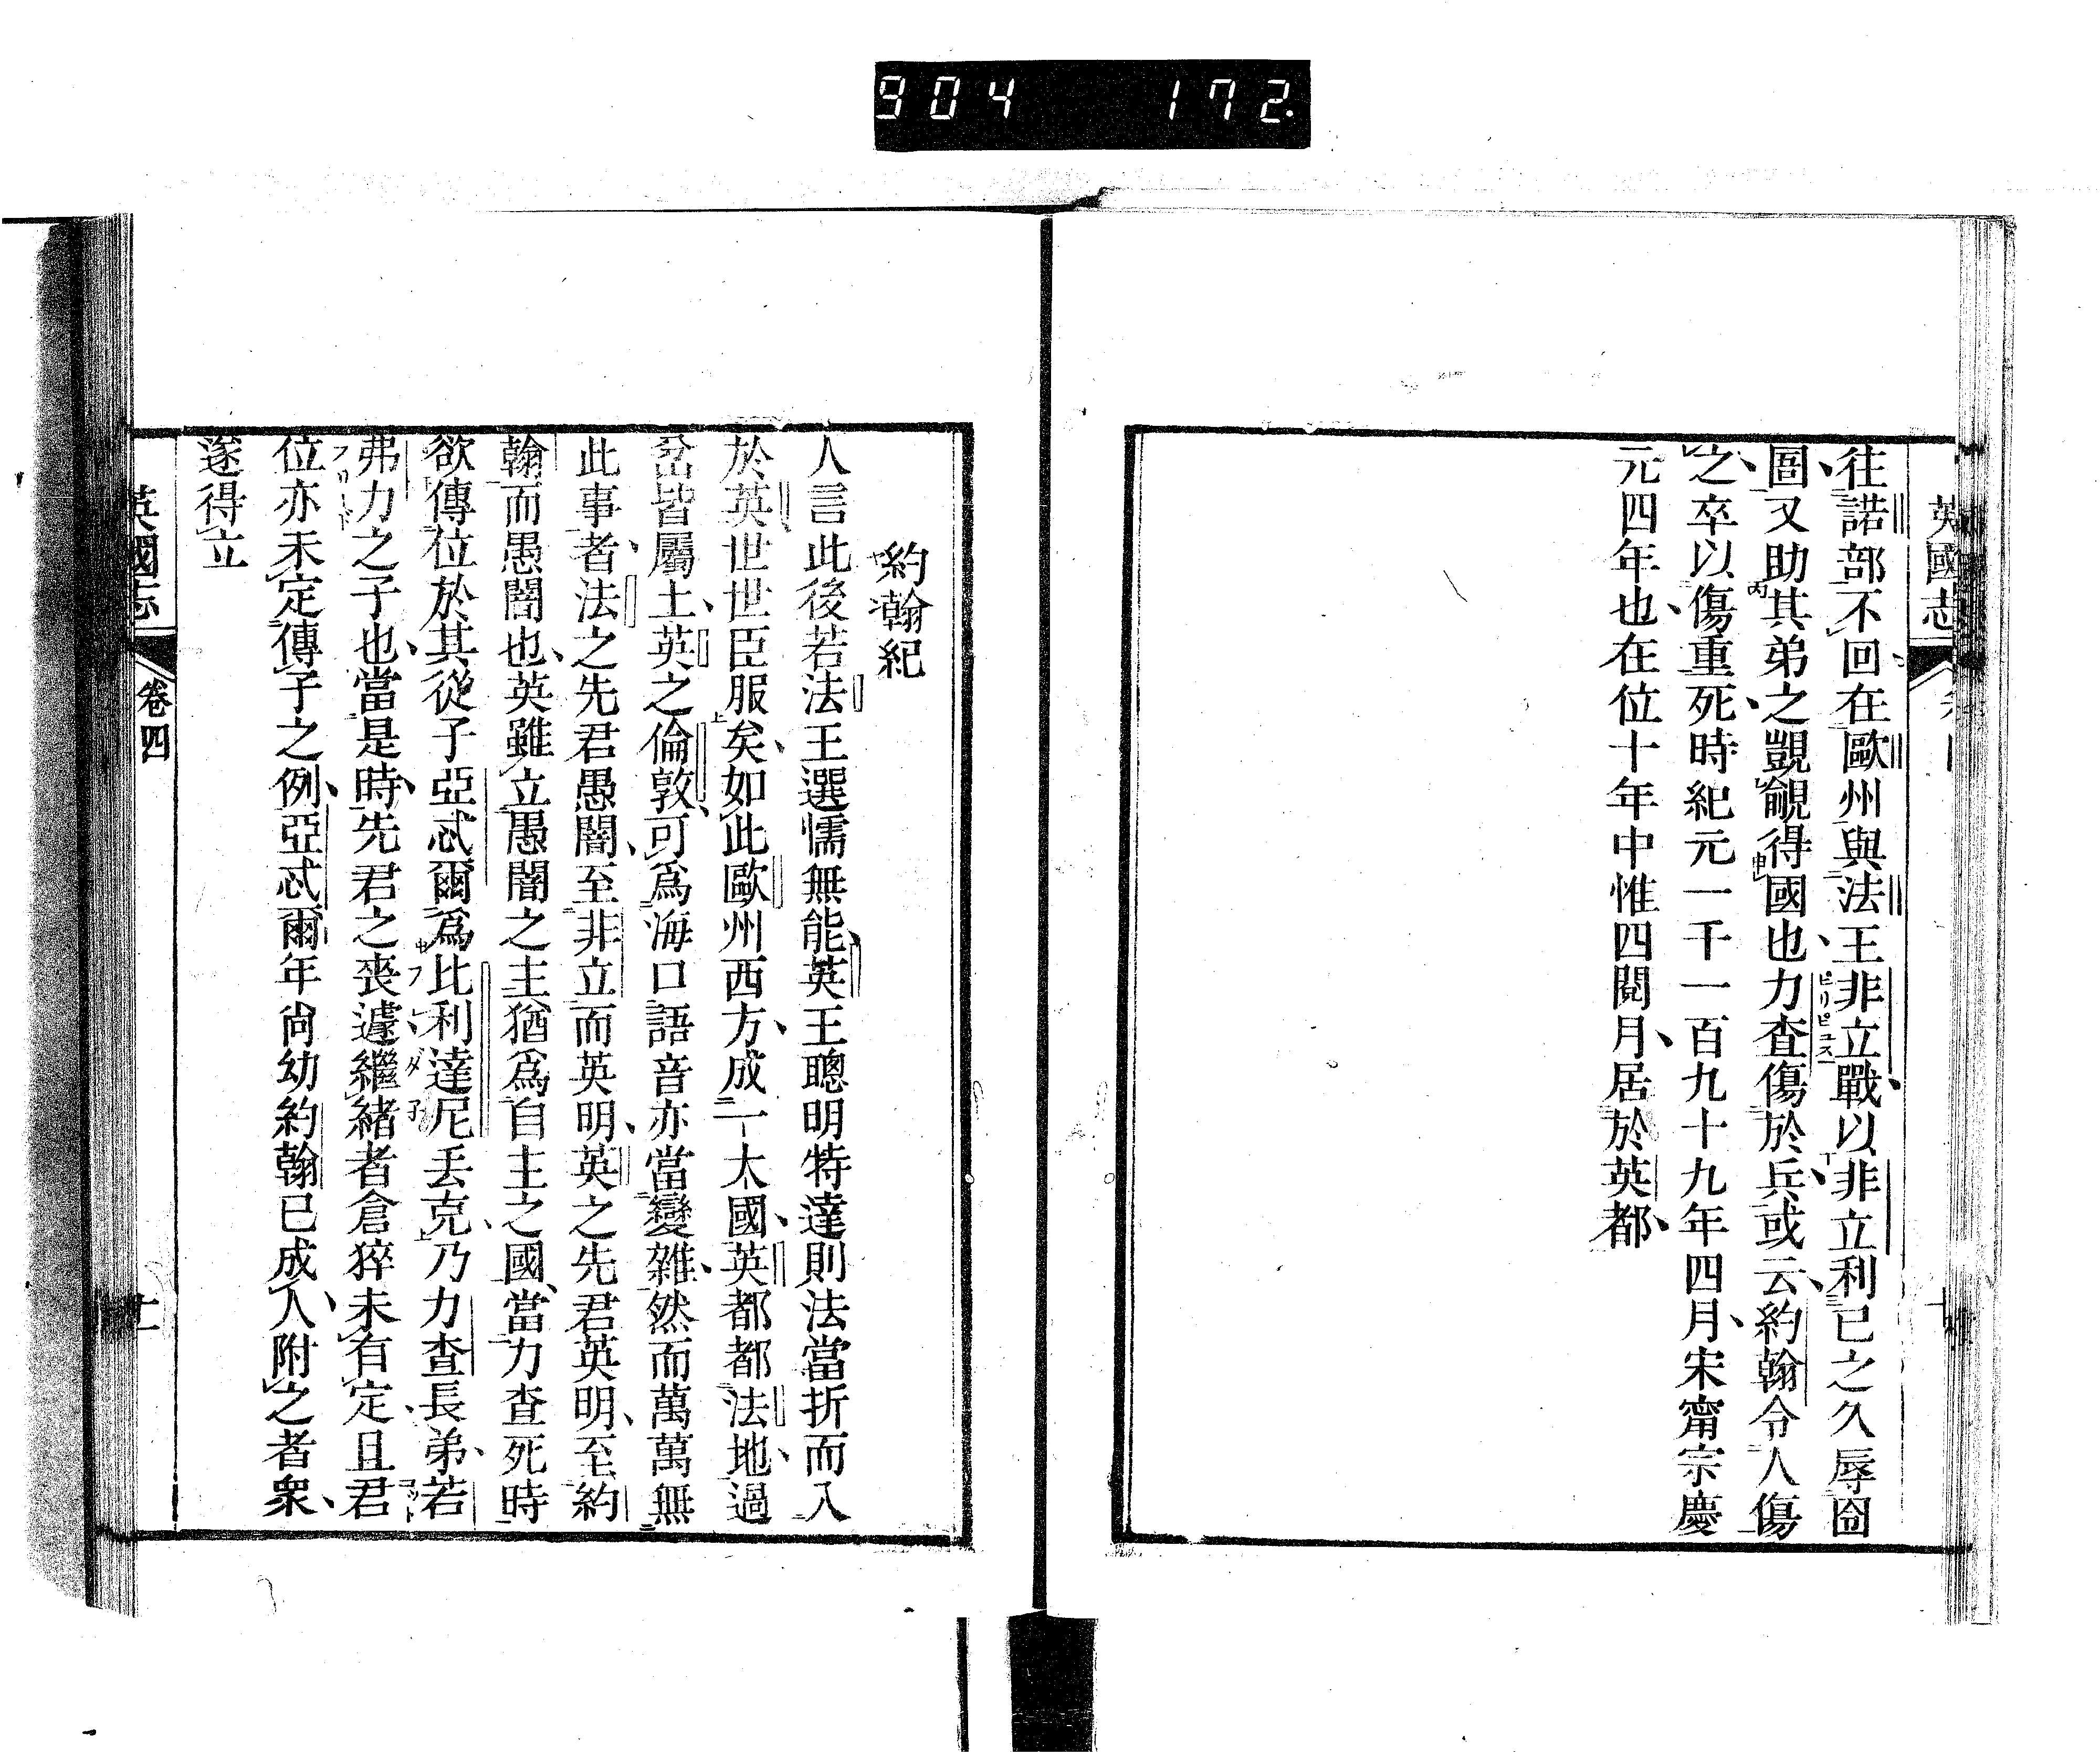 904 172
英國志
往諾部不回在歐州與法王非立戰以非立利已之久辱囹
圄又助其弟之覬覦得國也力查傷於兵或云約翰令人傷
之卒以傷重死時紀元一千一百九十九年四月宋甯宗慶
元四年也在位十年中惟四閱月居於英都
約翰紀
人言此後若法王選懦無能英王聰明特達則法當折而入
於英世世臣服矣如此歐州西方成一大國英都都法地過
岔皆屬土英之倫敦可為海口語音亦當變雜然而萬萬無
此事者法之先君愚闇至非立而英明英之先君英明至約
翰而愚闇也英雖立愚闇之主猶為自主之國當力查死時
欲傳位於其從子亞忒爾為比利達尼丢克乃力查長弟若
弗力之子也當是時先君之喪遽繼緒者倉猝未有定且君
位亦未定傳子之例亞忒爾年尚幼約翰已成人附之者衆
遂得立
英國志 卷四